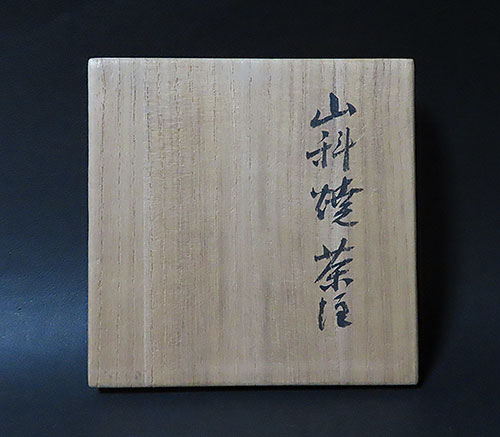 山科焼 茶注